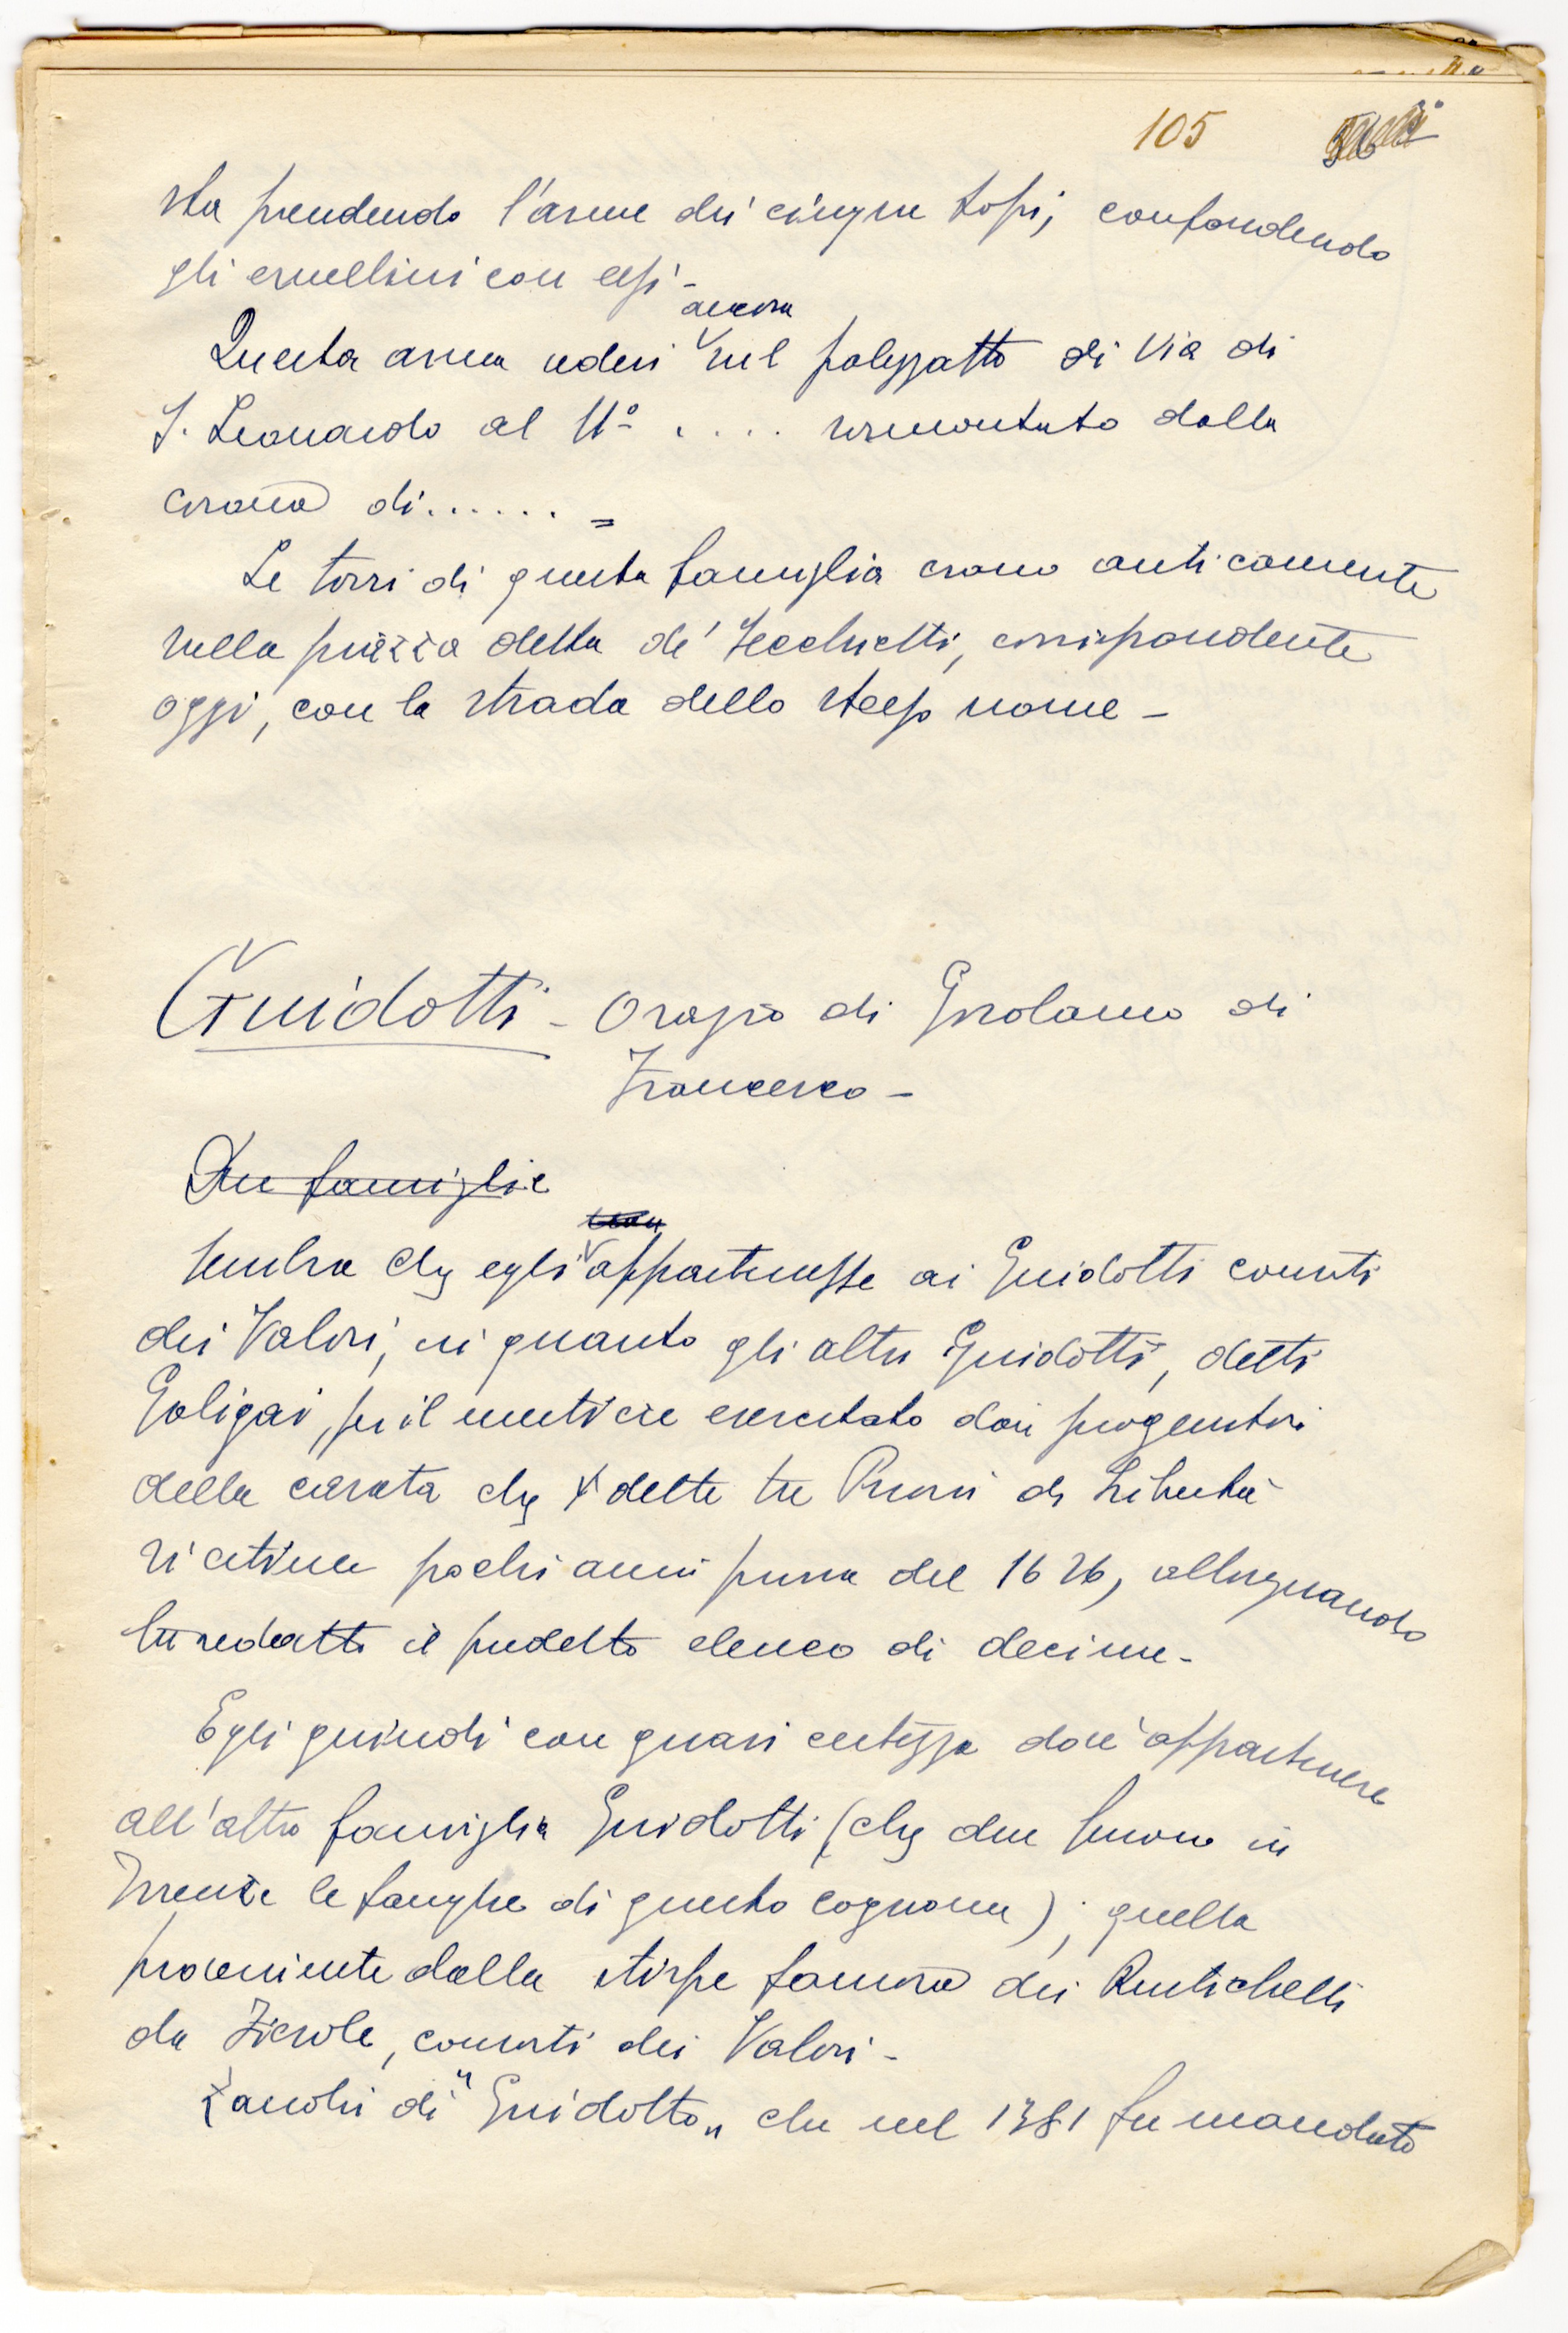 105
sta prendendo l'arme dei cinque topi, confondendo
gli ermellini con essi -
ancora
Questa arma vedesi nel palazzotto di Via di
S. Leonardo al N° .... sormontato dalla
corona di...... =
Le torri di questa famiglia erano anticamente
nella piazza detta de' Vecchietti, corrispondente
oggi, con la strada dello stesso nome -
Guidotti - Orazio di Girolamo di
Francesco -
Due famiglie
Sembra che egli appartenesse ai Guidotti consorti
dei Valori, in quanto gli altri Guidotti, detti
Galigai, per il mestiere esercitato dai progenitori
della casata che dette tre Priori di Libertà
si estinse pochi anni prima del 1626, allorquando
fu redatto il predetto elenco di decime -
Egli quindi con quasi certezza dové appartenere
all'altra famiglia Guidotti (che due furono in
Firenze le famiglie di questo cognome); quella
proveniente dalla stirpe famosa dei Rustichelli
da Fiesole, consorti dei Valori -
Zanobi di "Guidotto" che nel 1381 fu mandato